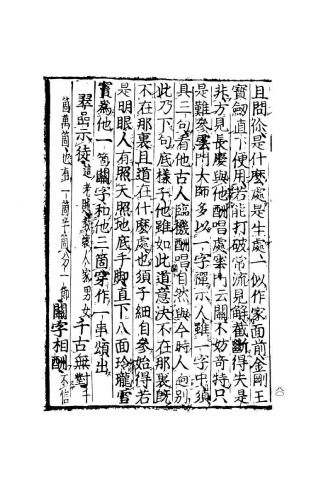 且問你是什麼處是生處一似作家面前金剛王
寶劒直下便用若能打破常流見解截斷得失是
非方見長慶與他酬唱處雲門云關不妨奇特只
是難參雲門大師多以一字禪示人雖一字中須
具三句看他古人臨機酬唱自然與今時人迥別
此乃下句底樣子他雖如此道意決不在那裏既
不在那裏且道在什麼處也須子細自參始得若
是明眼人有照天照地底手脚直下八面玲瓏雪
竇為他一箇關字和他三箇穿作一串頌出
翠嵒示徒這老賊教壞人家男女千古無對千
箇萬箇也有一箇半箇分一節關字相酬不信